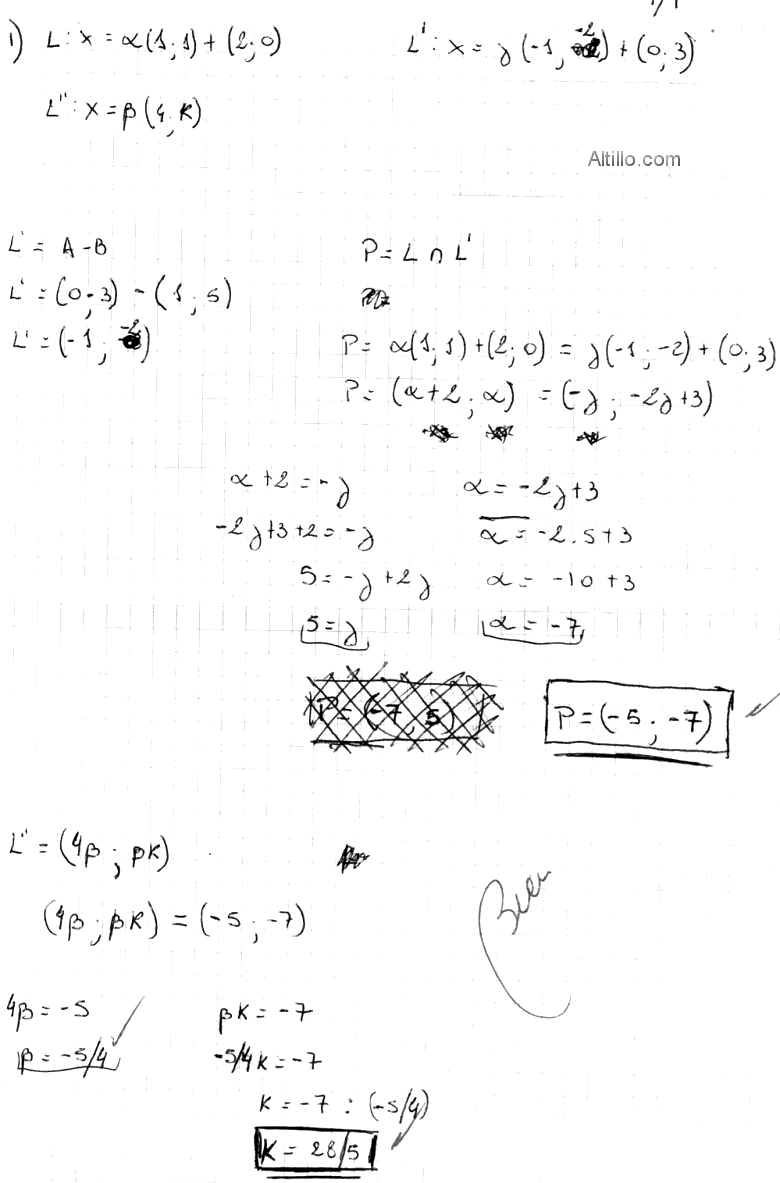 1) L: x = α(1;1) + (2;0)
L': x = γ(-1; -2) + (0;3)
L'': x = β(4;K)
Altillo.com
L' = A - B
L' = (0;3) - (1;5)
L' = (-1; -2)
P = L ∩ L'
P = α(1;1) + (2;0) = γ(-1; -2) + (0;3)
P = (α+2; α) = (-γ; -2γ+3)
α + 2 = -γ
α = -2γ+3
-2γ+3+2 = -γ
α = -2.5+3
5 = -γ+2γ
α = -10+3
5 = γ
α = -7
P = (-7, 5)
P = (-5; -7)
L'' = (4β; βK)
(4β; βK) = (-5; -7)
Bien
4β = -5
βK = -7
β = -5/4
-5/4 K = -7
K = -7 : (-5/4)
K = 28/5